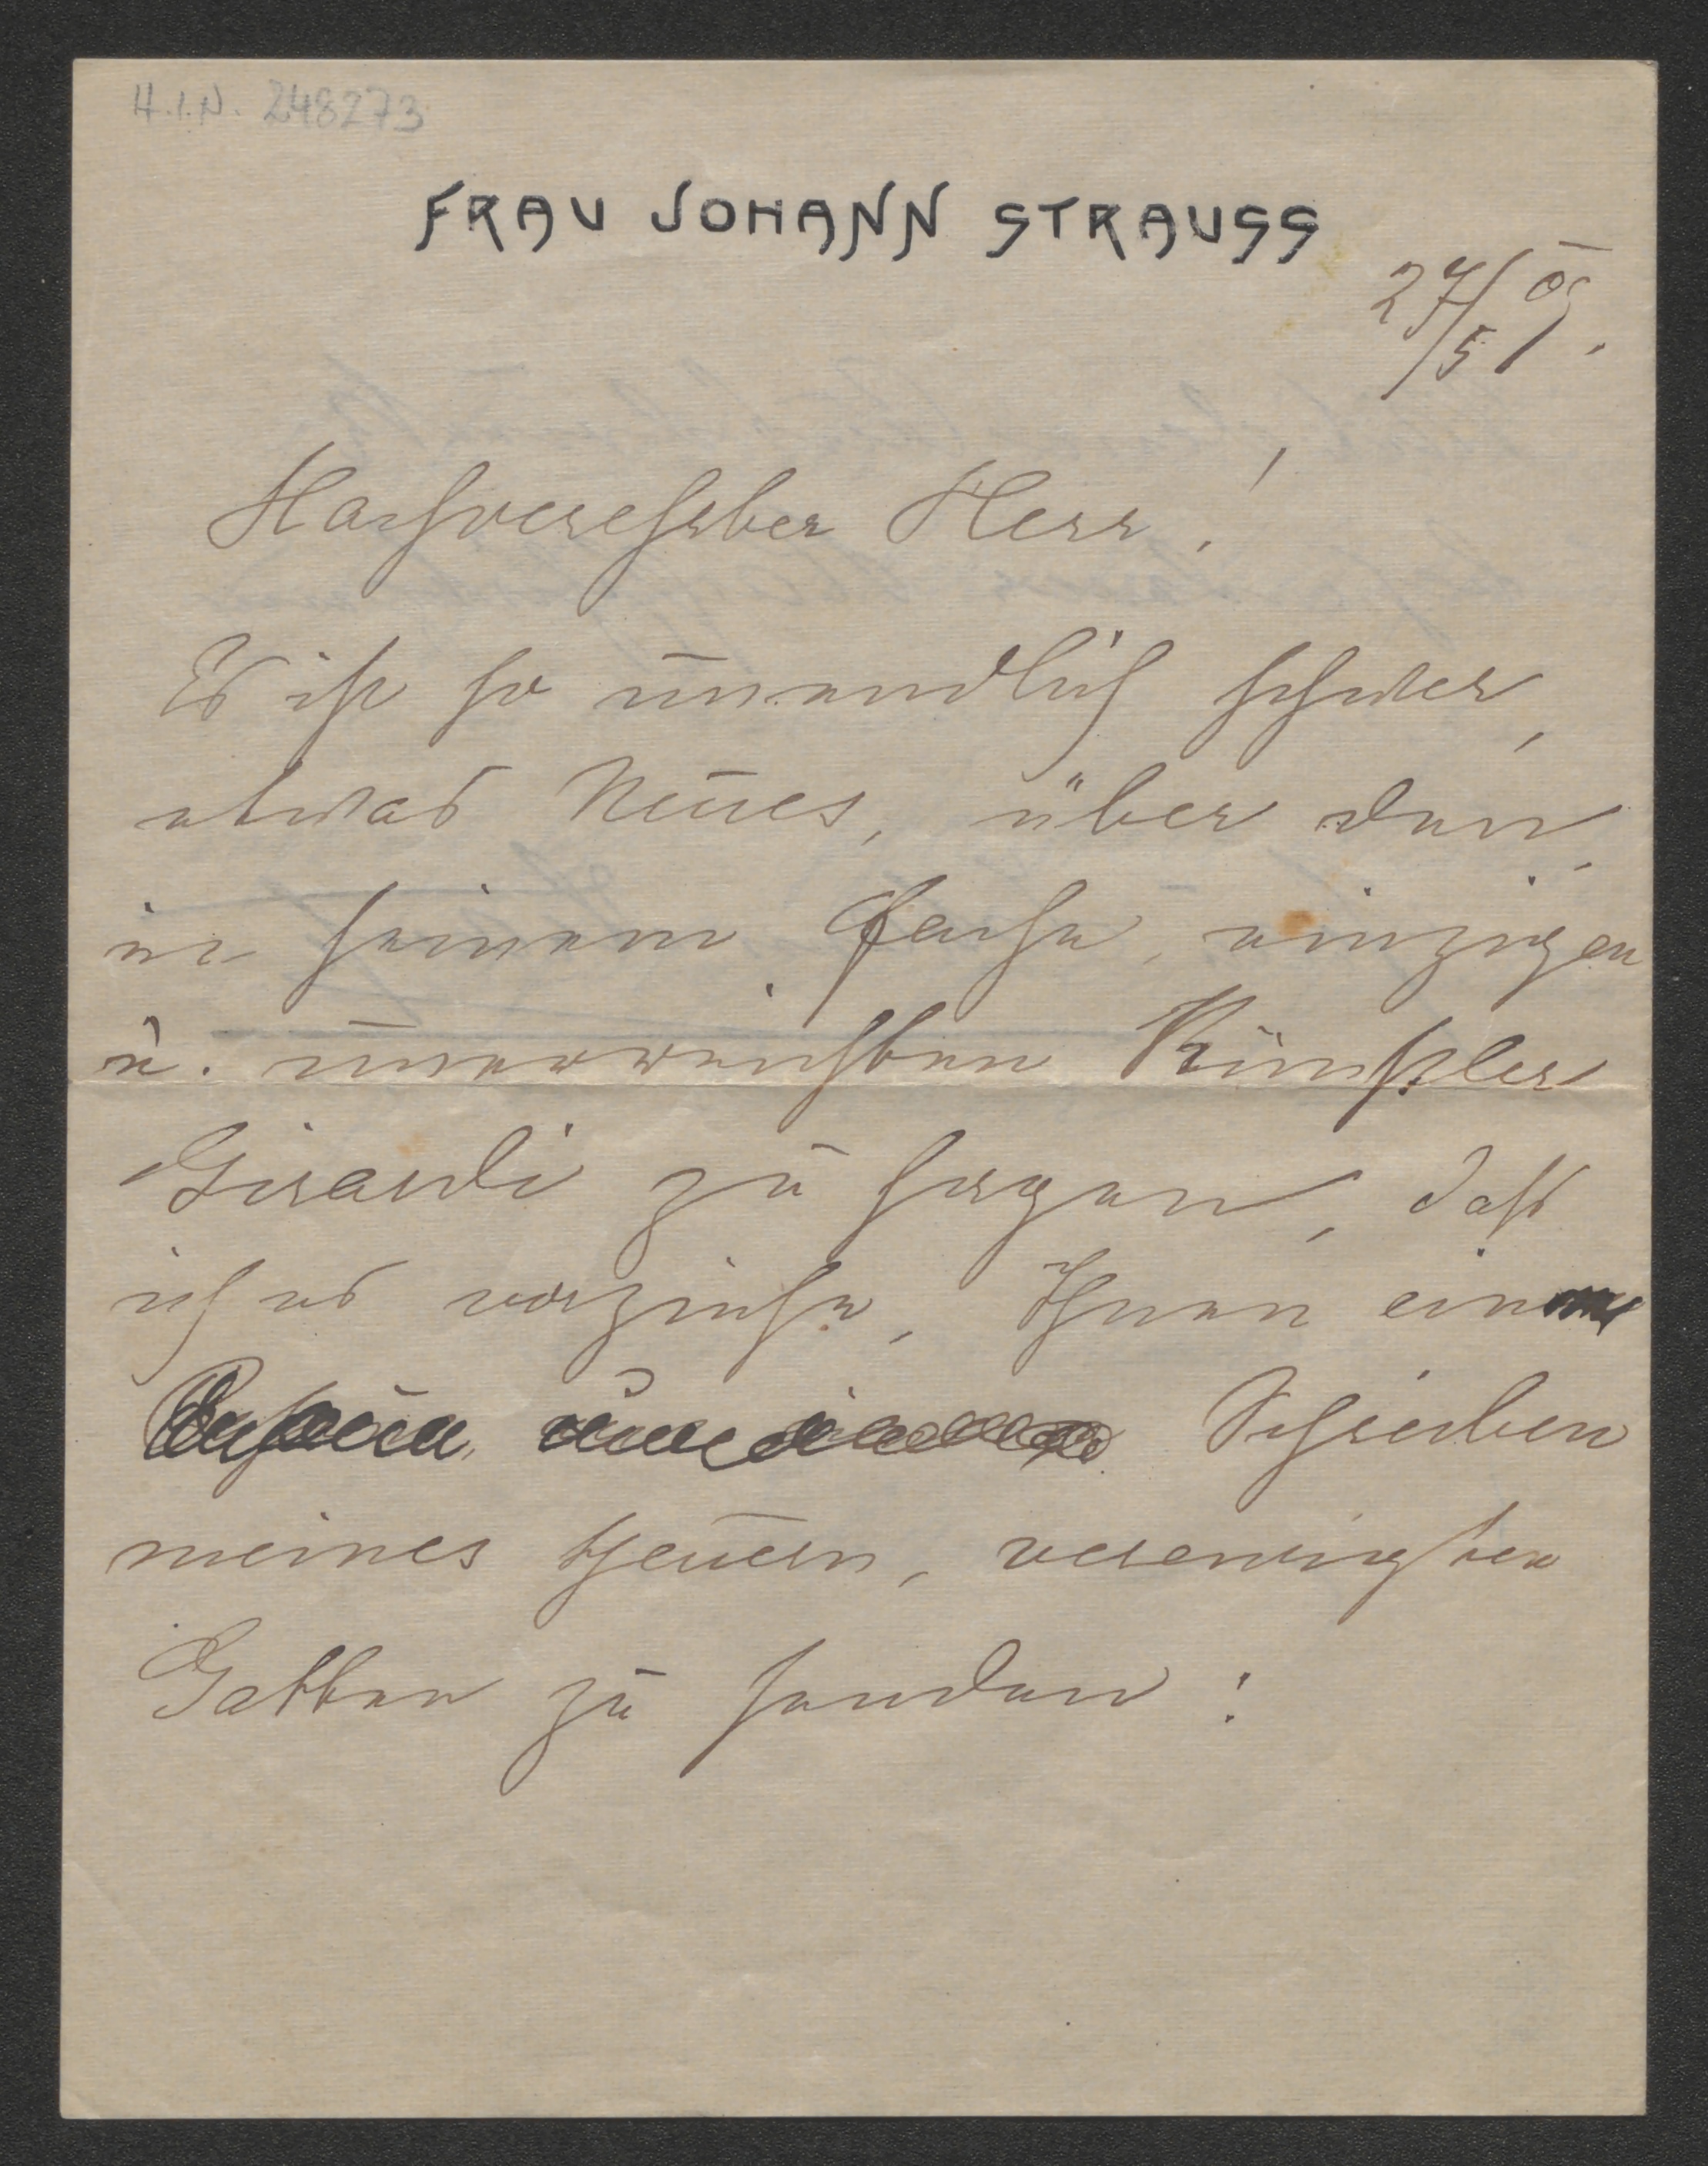 H.I.N. 248273
FRAU JOHANN STRAUSS
27/5 09.
Hochverehrter Herr!
Es ist so unendlich schwer,
etwas Neues, über den,
in seinem Fache, einzigen
u. unerreichten Künstler
Girardi zu sagen, daß
ich es vorziehe, Ihnen ein
Schreiben
meines theuern, verewigten
Gatten zu senden: